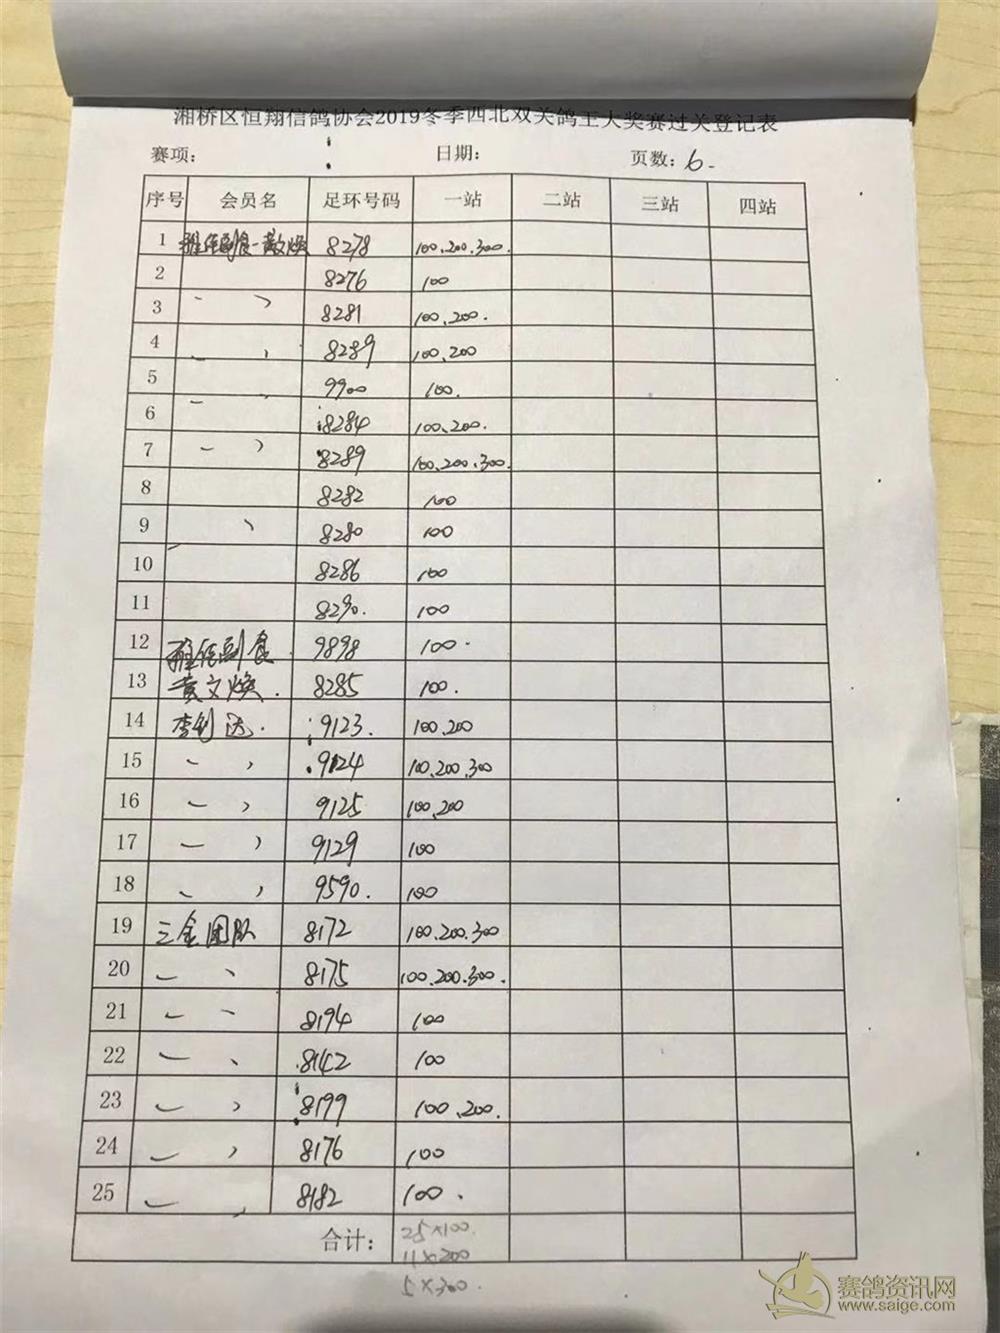 湘桥区恒翔信鸽协会2019冬季西北双关鸽王大奖赛过关登记表
赛项： 日期： 页数：6.
序号 会员名 足环号码 一站 二站 三站 四站
1 雅佳副食-黄文焕 8278 100.200.300.
2 8276 100
3 8281 100,200.
4 8289 100,200
5 9900 100.
6 8284 100,200.
7 8289 100,200,300.
8 8282 100
9 8280 100
10 8286 100
11 8290. 100
12 副食 9898 100.
13 黄文焕. 8285 100.
14 李创达. 9123. 100,200
15 9124 100,200,300
16 9125 100,200
17 9129 100
18 9590. 100
19 三金团队 8172 100.200.300
20 8175 100.200.300.
21 8194 100
22 8142 100
23 8199 100.200.
24 8176 100
25 8182 100.
合计： 25×100.
11×200
5×300.
赛鸽资讯网
www.saige.com